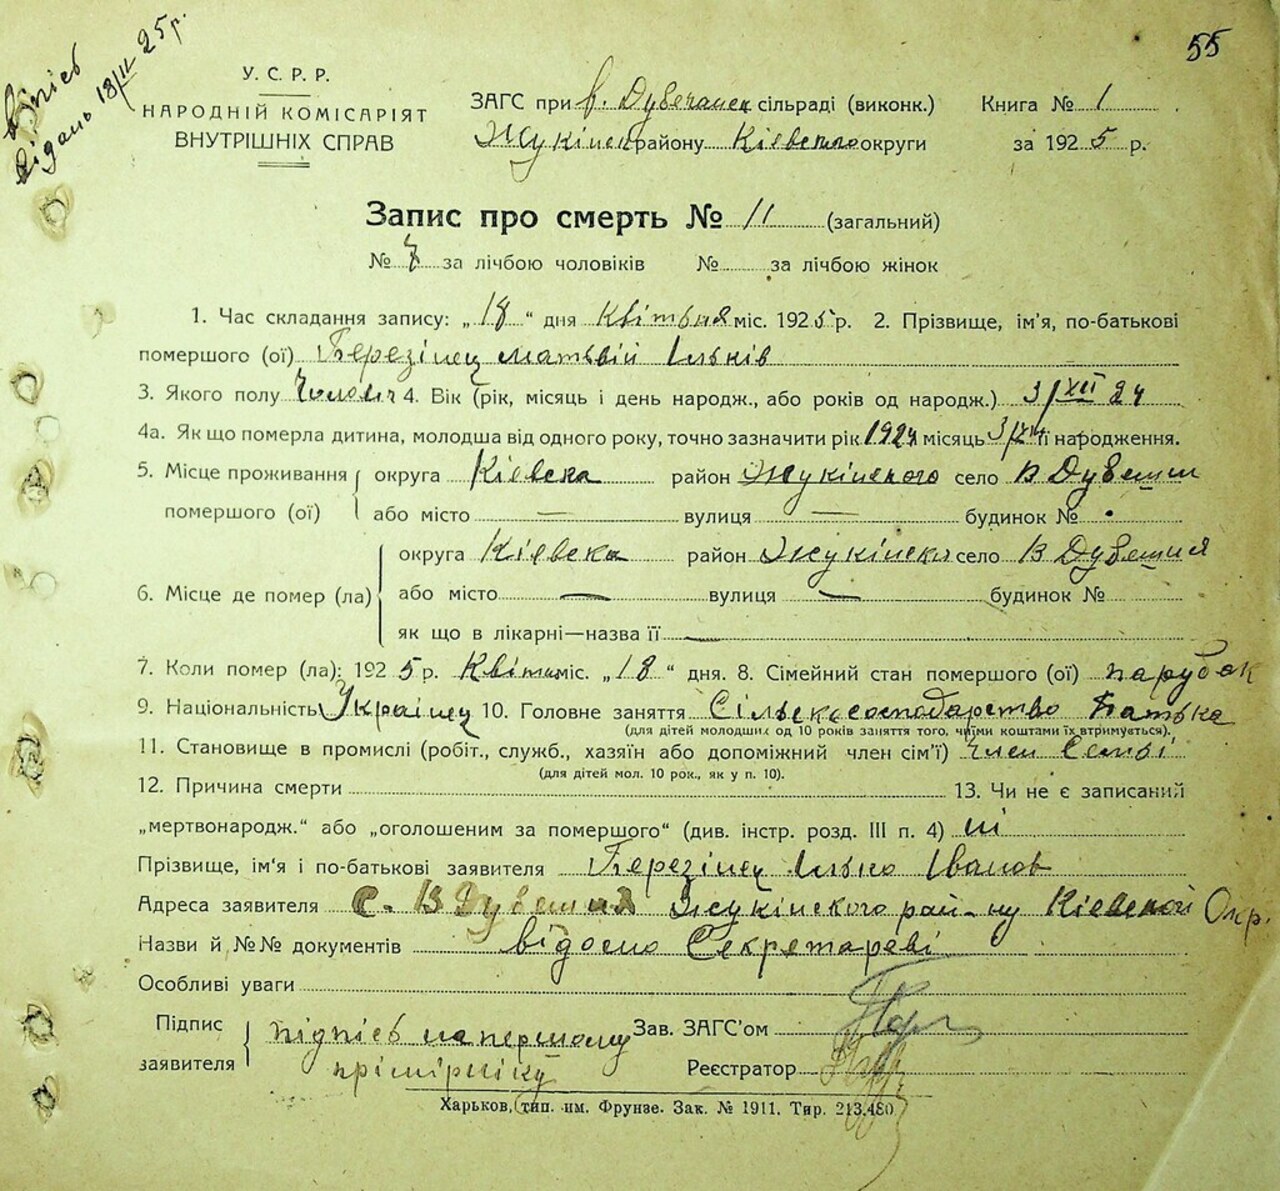 55
Витпісь видань 18/IV 25 р.
У. С. Р. Р.
НАРОДНІЙ КОМІСАРІЯТ
ВНУТРІШНІХ СПРАВ
ЗАГС при В. Дувечанск сільраді (виконк.) Книга № 1
Жукінск району Кіевского округи за 1925 р.
Запис про смерть № 11 (загальний)
№ 7 за лічбою чоловіків № за лічбою жінок
1. Час складання запису: „18“ дня Квітня міс. 1925 р. 2. Прізвище, ім'я, по-батькові
помершого (ої) Березінец Матьвій Ільків
3. Якого полу Чоловіч 4. Вік (рік, місяць і день народж., або років од народж.) 3/XII 24
4а. Як що померла дитина, молодша від одного року, точно зазначити рік 1924 місяць 3/XII її народження.
5. Місце проживання помершого (ої) округа Кіевска район Жукінского село В Дувешня
або місто — вулиця — будинок №
6. Місце де помер (ла) округа Кіевска район Жукінски село В Дувешня
або місто — вулиця — будинок №
як що в лікарні—назва її —
7. Коли помер (ла): 1925 р. Квітня міс. „18“ дня. 8. Сімейний стан помершого (ої) парубок
9. Національність Українец 10. Головне заняття Сільскогосподарство Батька
(для дітей молодших од 10 років заняття того, чиїми коштами їх втримується).
11. Становище в промислі (робіт., служб., хазяїн або допоміжний член сім'ї) Член Семьї
(для дітей мол. 10 рок., як у п. 10).
12. Причина смерти 13. Чи не є записаний
„мертвонародж.“ або „оголошеним за помершого“ (див. інстр. розд. III п. 4) ні
Прізвище, ім'я і по-батькові заявителя Березінец Ілько Іванов
Адреса заявителя С. В Дувешня Жукінского рай-ну Кіевской Окр.
Назви й №№ документів відомо Секретареві
Особливі уваги
Підпис заявителя підпісь на першому прімірніку
Зав. ЗАГС'ом
Реєстратор
Харьков, тип. им. Фрунзе. Зак. № 1911. Тир. 213.480